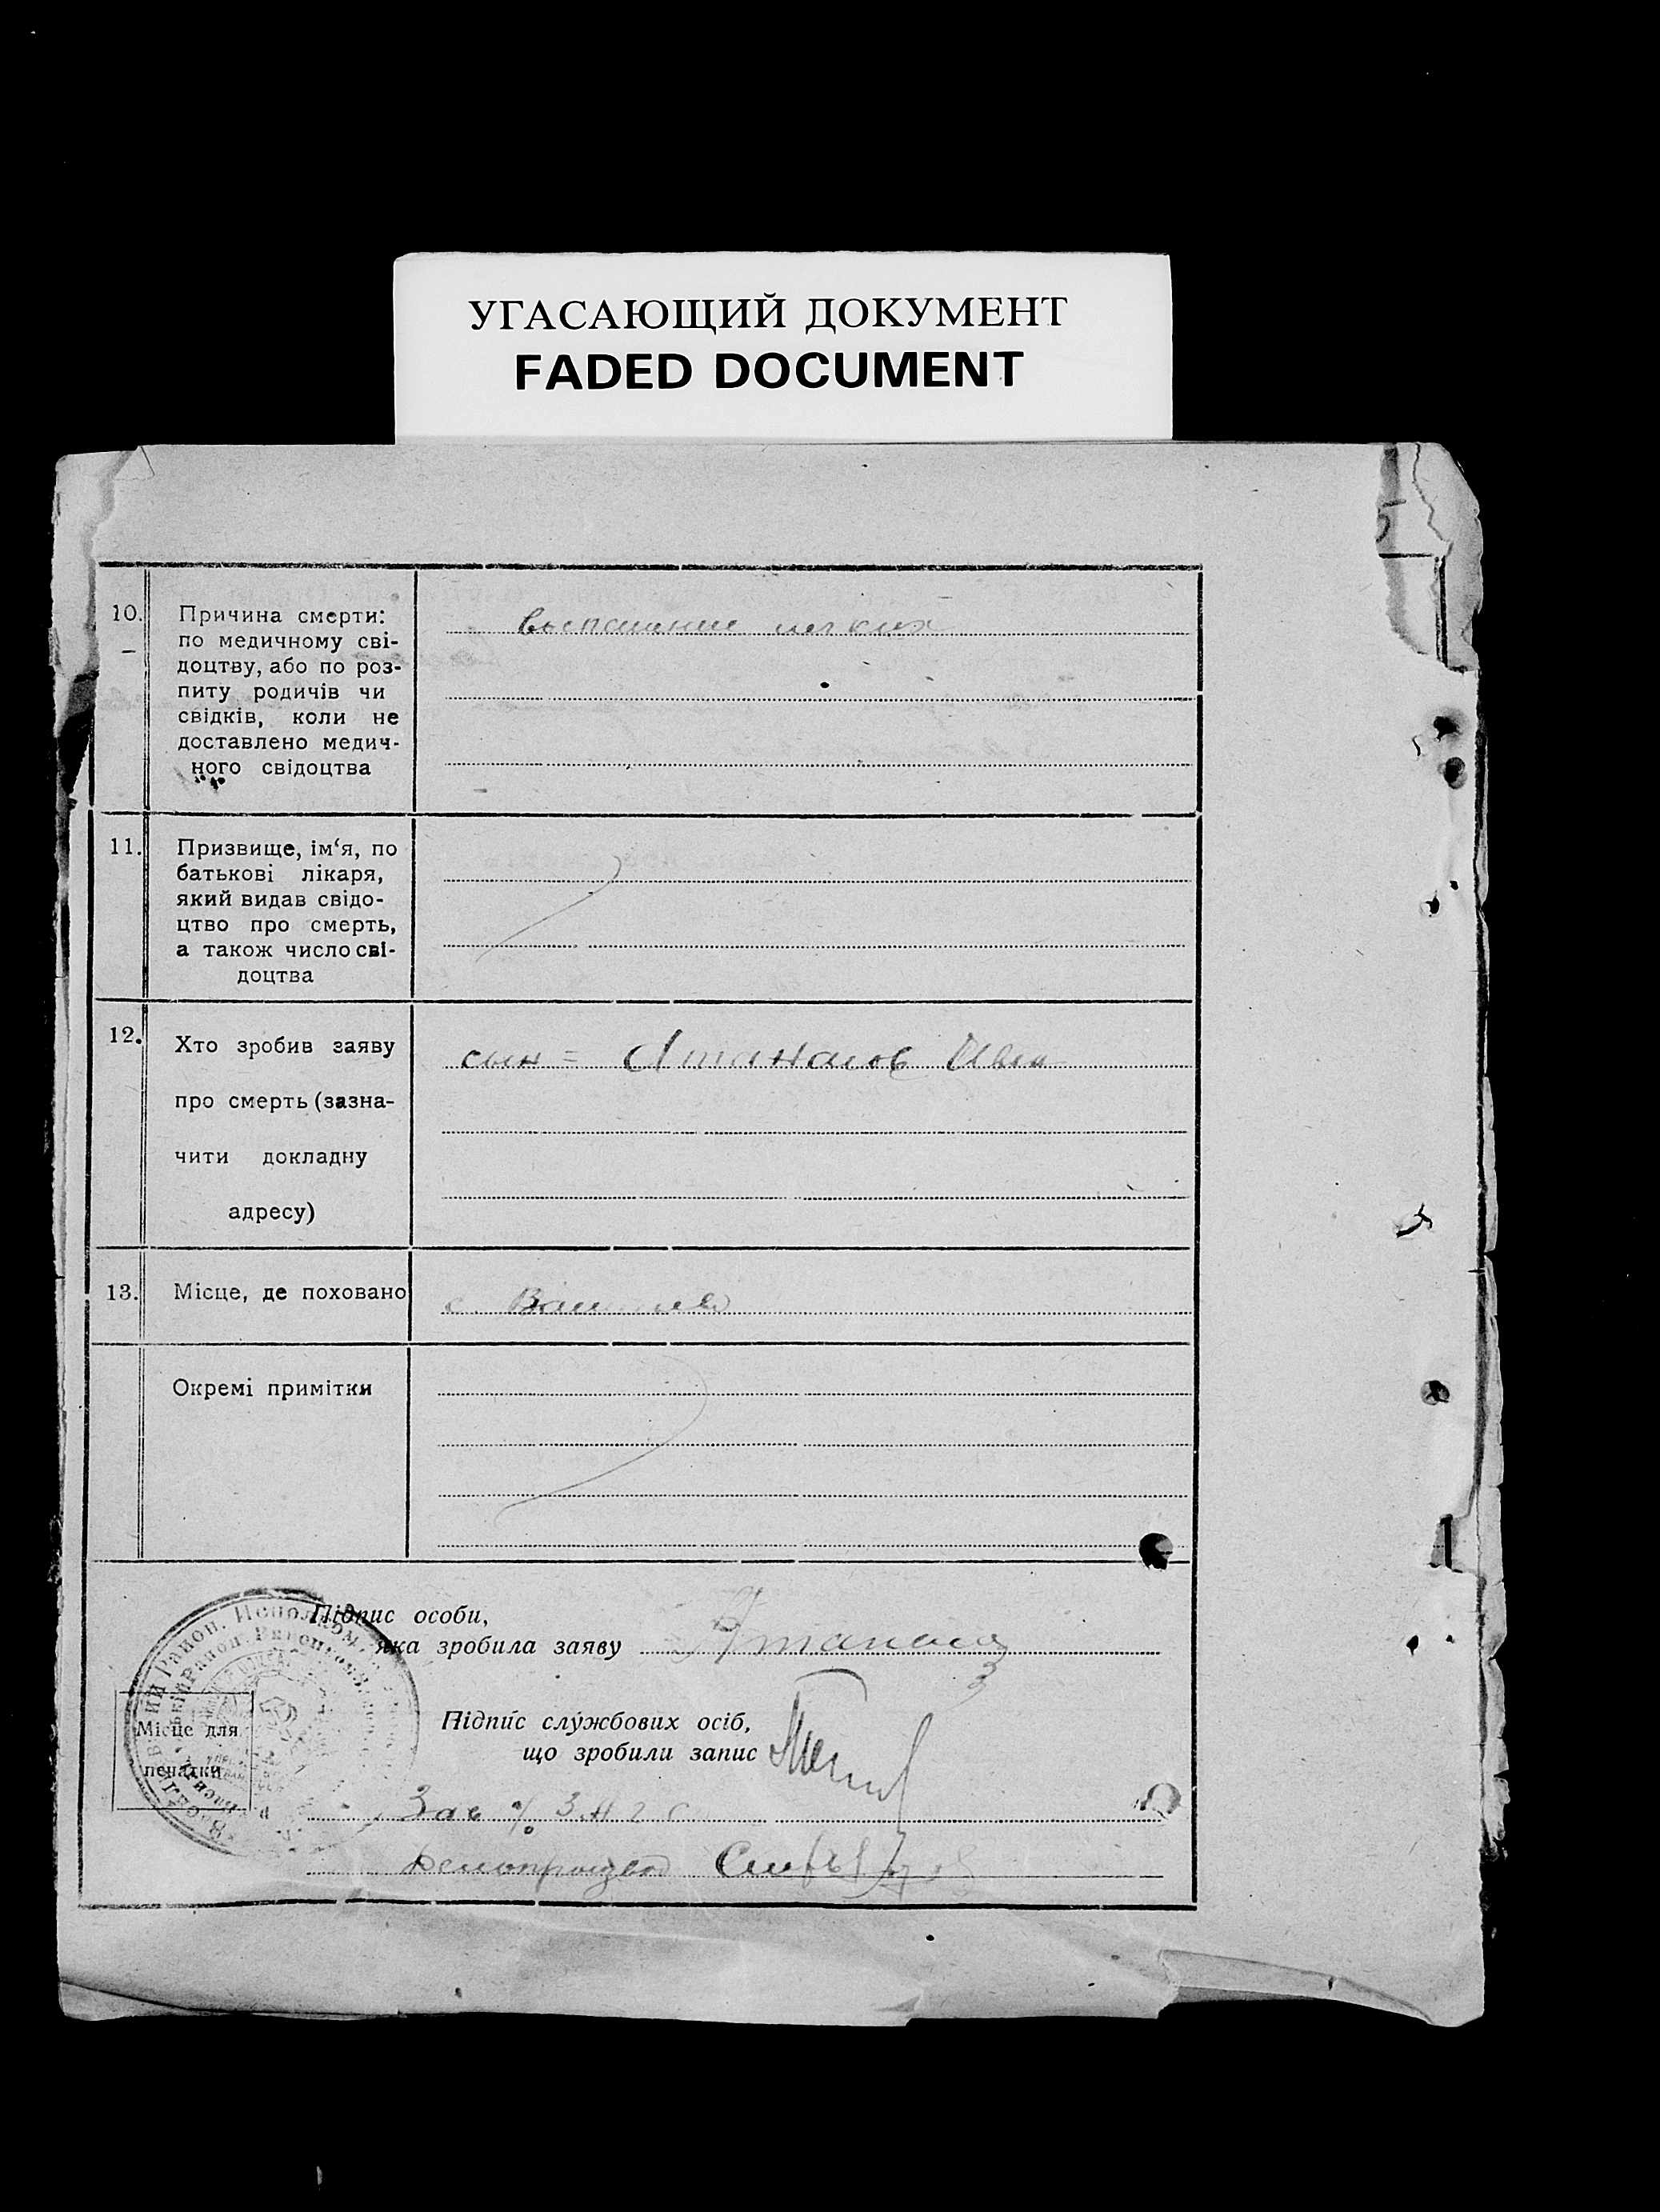 УГАСАЮЩИЙ ДОКУМЕНТ
FADED DOCUMENT
10. Причина смерти:
по медичному сві-
доцтву, або по роз-
питу родичів чи
свідків, коли не
доставлено медич-
ного свідоцтва
воспаление легких
11. Призвище, ім‘я, по
батькові лікаря,
який видав свідо-
цтво про смерть,
а також число сві-
доцтва
12. Хто зробив заяву
про смерть (зазна-
чити докладну
адресу)
сын = Атанасов
13. Місце, де поховано
с.
Окремі примітки
Підпис особи,
яка зробила заяву
Підпис службових осіб,
що зробили запис
Місце для
печатки
Зав